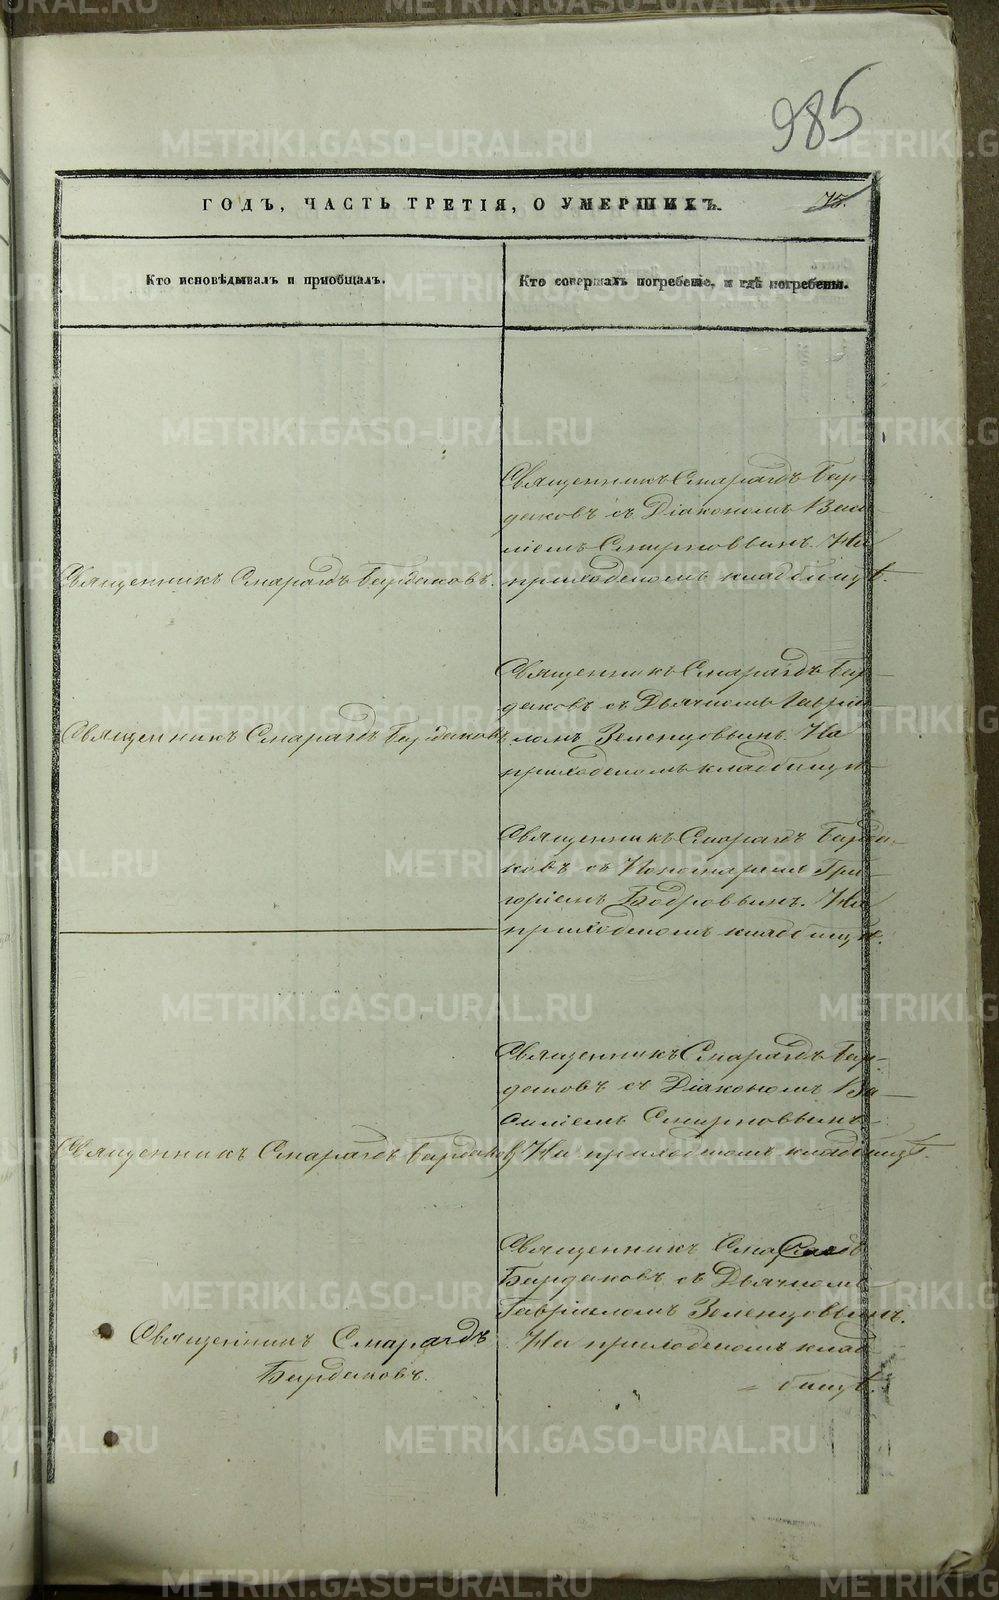 985
ГОДЪ, ЧАСТЬ ТРЕТІЯ, О УМЕРШИХЪ.
75.
Кто исповѣдывалъ и пріобщалъ.
Кто совершалъ погребеніе, и гдѣ погребены.
Священникъ Смарагдъ Бардаковъ.
Священникъ Смарагдъ Бар-
даковъ съ Діакономъ Васи
ліемъ Смирновымъ. На
приходскомъ кладбищѣ.
Священникъ Смарагдъ Бардаковъ
Священникъ Смарагдъ Бар-
даковъ съ Дьячкомъ Гаврі
ломъ Зеленцовымъ. На
приходскомъ кладбищѣ.
Священникъ Смарагдъ Барда-
ковъ съ Пономаремъ Гри-
горіемъ Бодровымъ. На
приходскомъ кладбищѣ.
Священникъ Смарагдъ Бардаковъ
Священникъ Смарагдъ Бар-
даковъ съ Діакономъ Ва-
силіемъ Смирновымъ
На приходскомъ кладбищѣ.
Священникъ Смарагдъ
Бардаковъ.
Священникъ
Бардаковъ съ Дьячкомъ
Гавріиломъ Зеленцовымъ.
На приходскомъ клад
= бищѣ.
METRIKI.GASO-URAL.RU